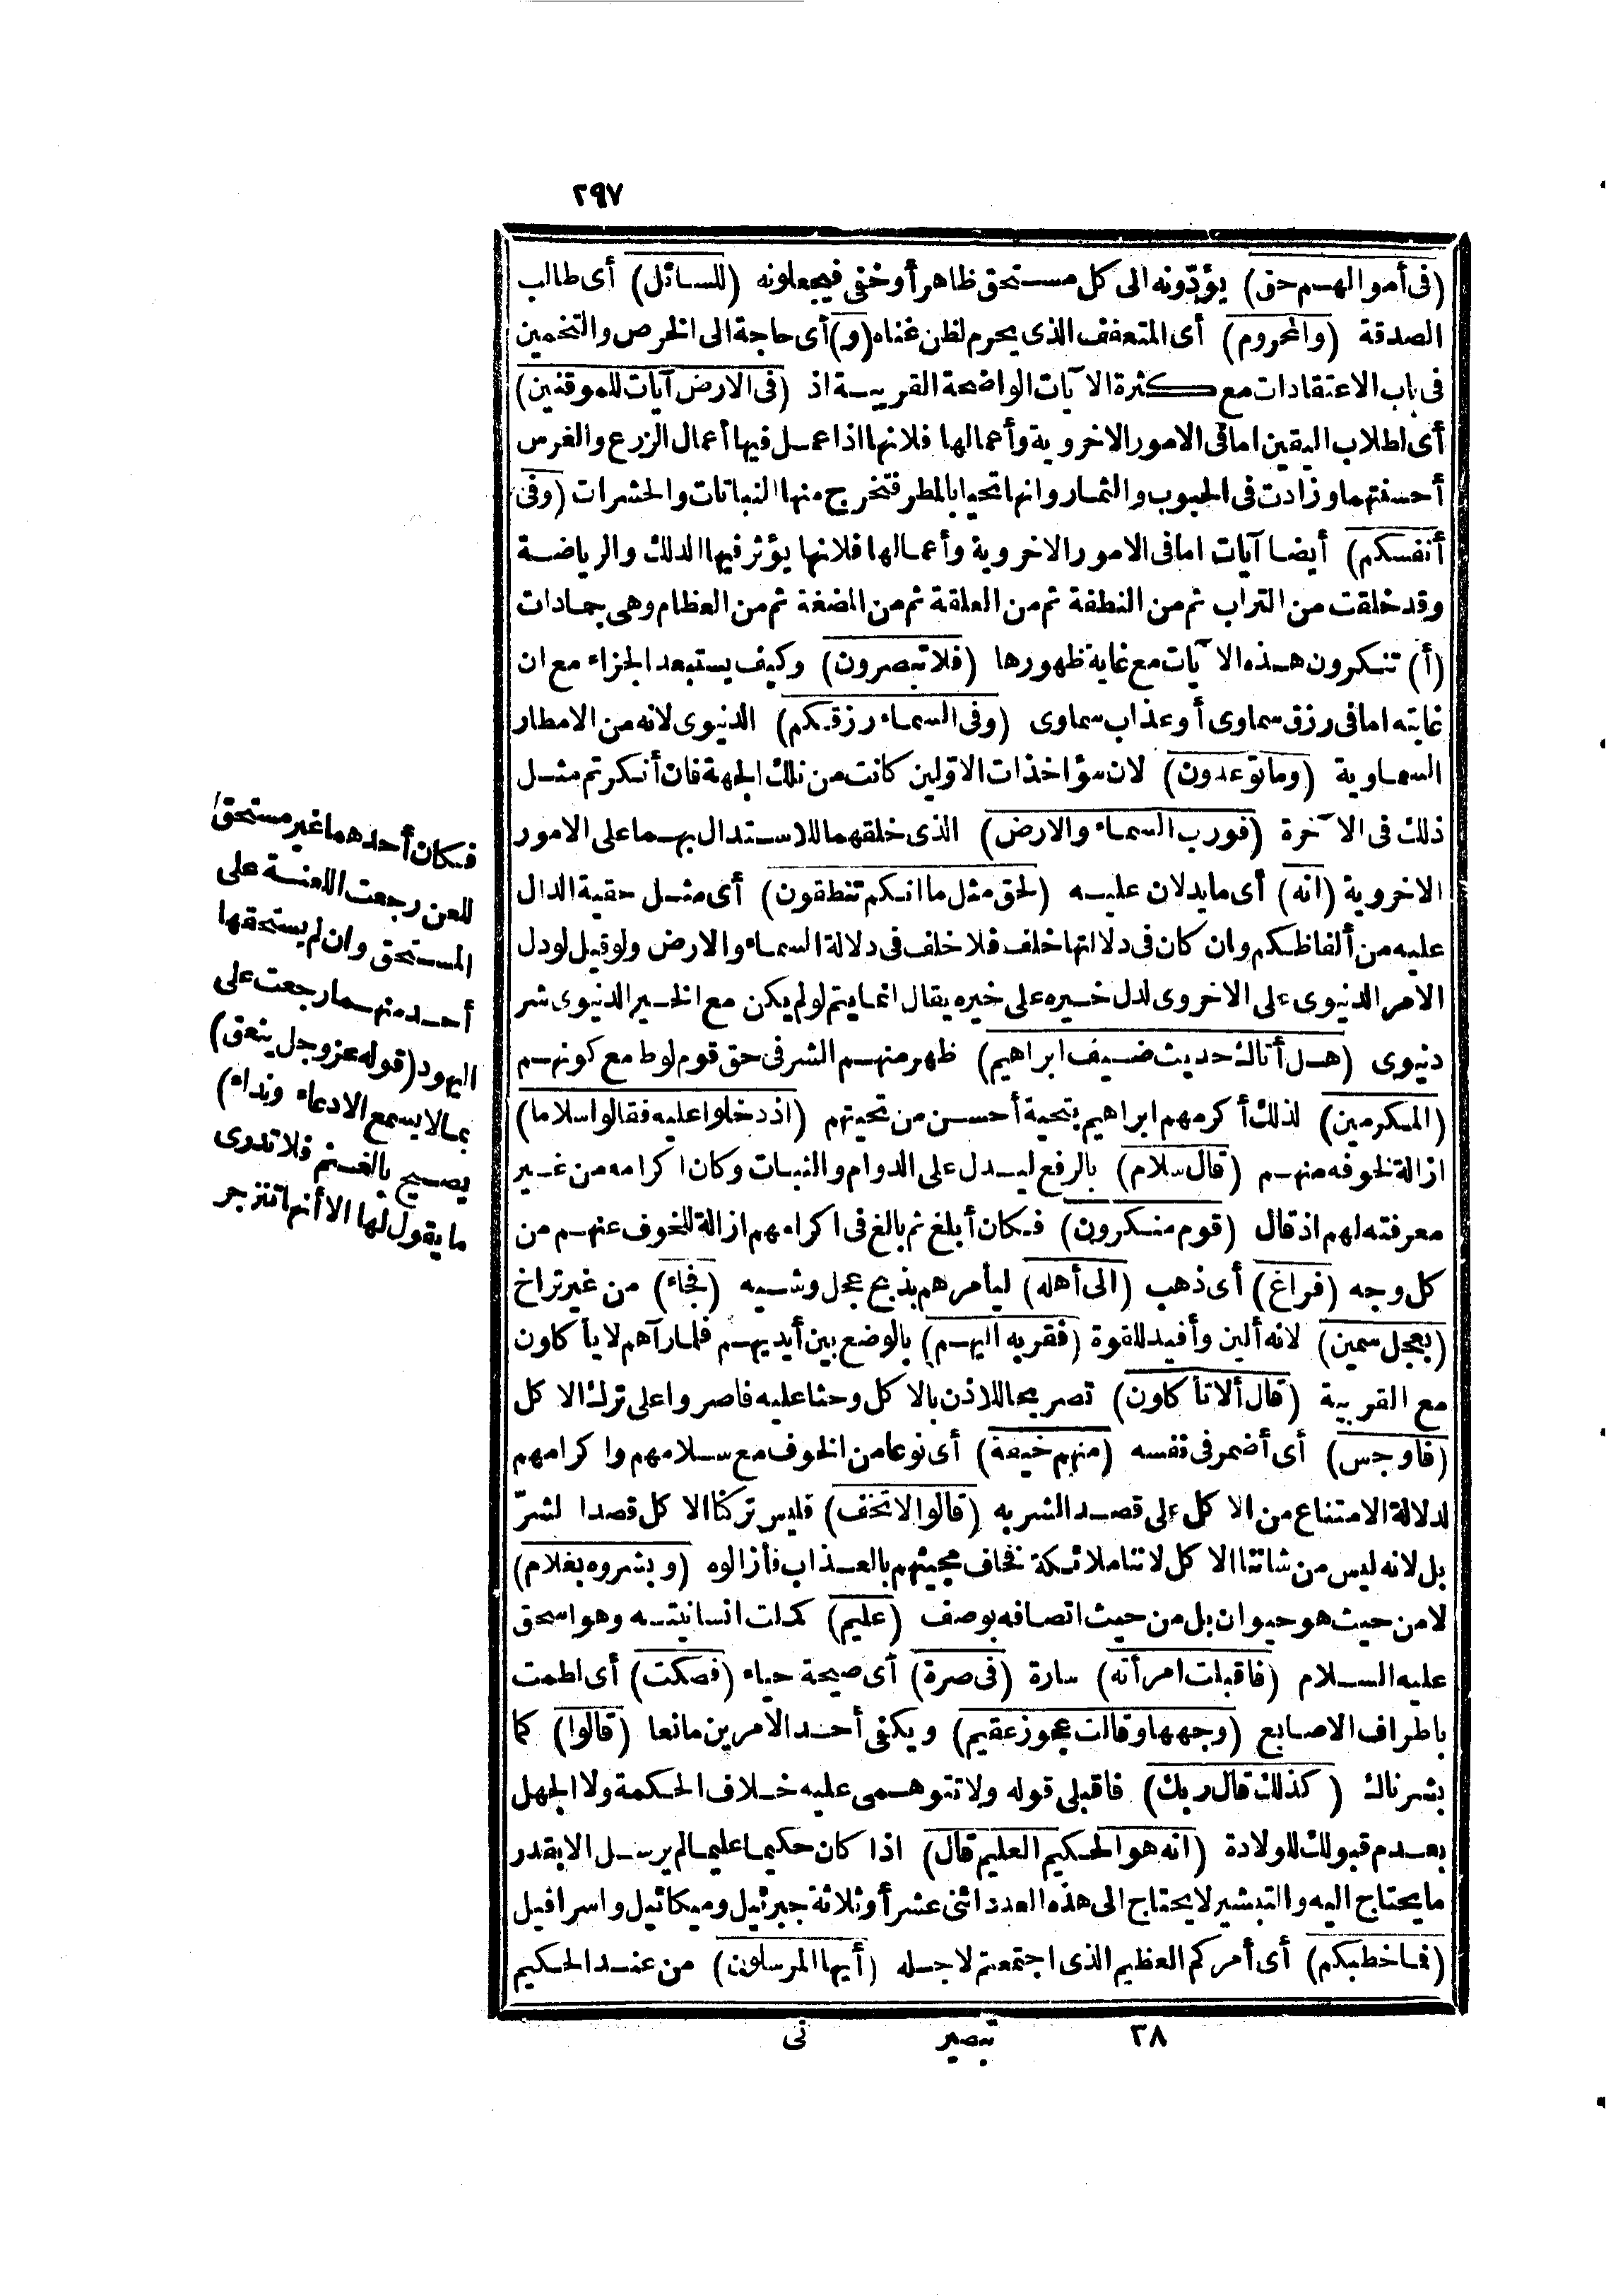 ٢٩٧
(فى أموالهم حق) يؤدّونه الى كل مستحق ظاهر أو خفى فيجعلونه (للسائل) أى طالب
الصدقة (والمحروم) أى المتعفف الذى يحرم لظن غناه (و) أى حاجة الى الخرص والتخمين
فى باب الاعتقادات مع كثرة الآيات الواضحة القريبة اذ (فى الارض آيات للموقنين)
أى لطلاب اليقين اما فى الامور الاخروية وأعمالها فلانها اذا عمل فيها أعمال الزرع والغرس
أحسنتهما وزادت فى الحبوب والثمار وانها تحيا بالمطر فتخرج منها النباتات والحشرات (وفى
أنفسكم) أيضا آيات اما فى الامور الاخروية وأعمالها فلانها يؤثر فيها الدلك والرياضة
وقد خلقت من التراب ثم من النطفة ثم من العلقة ثم من المضغة ثم من العظام وهى جمادات
(أ) تنكرون هذه الآيات مع غاية ظهورها (فلا تبصرون) وكيف يستبعد الجزاء مع ان
غايته اما فى رزق سماوى أو عذاب سماوى (وفى السماء رزقكم) الدنيوى لانه من الامطار
السماوية (وما توعدون) لان مؤاخذات الاوّلين كانت من تلك الجهة فان أنكرتم مثل
ذلك فى الآخرة (فورب السماء والارض) الذى خلقهما للاستدلال بهما على الامور
الاخروية (انه) أى ما يدلان عليه (لحق مثل ما انكم تنطقون) أى مثل حقية الدال
عليه من ألفاظكم وان كان فى دلالتها خلف فلا خلف فى دلالة السماء والارض ولو قيل لو دل
الامر الدنيوى على الاخروى لدل خيره على خيره يقال انما يتم لو لم يكن مع الخير الدنيوى شر
دنيوى (هل أتاك حديث ضيف ابراهيم) ظهر منهم الشر فى حق قوم لوط مع كونهم
(المكرمين) لذلك أكرمهم ابراهيم بتحية أحسن من تحيتهم (اذ دخلوا عليه فقالوا سلاما)
ازالة لخوفه منهم (قال سلام) بالرفع ليدل على الدوام والثبات وكان اكرامه من غير
معرفته لهم اذ قال (قوم منكرون) فكان أبلغ ثم بالغ فى اكرامهم ازالة للخوف عنهم من
كل وجه (فراغ) أى ذهب (الى أهله) ليأمرهم بذبح عجل وشيه (فجاء) من غير تراخ
(بعجل سمين) لانه ألين وأفيد للقوة (فقربه اليهم) بالوضع بين أيديهم فلما رآهم لا يأكلون
مع القريبة (قال ألا تأكلون) تصريحا للاذن بالاكل وحثا عليه فاصروا على ترك الاكل
(فأوجس) أى أضمر فى نفسه (منهم خيفة) أى نوعا من الخوف مع سلامهم واكرامهم
لدلالة الامتناع من الاكل على قصد الشر به (قالوا لا تخف) فليس تركنا الاكل قصدا لشرّ
بل لانه ليس من شاننا الاكل لاننا ملائكة فخاف مجيئهم بالعذاب فأزالوه (وبشروه بغلام)
لا من حيث هو حيوان بل من حيث اتصافه بوصف (عليم) كملت انسانيته وهو اسحق
عليه السلام (فاقبلت امرأته) سارة (فى صرة) أى صيحة حياء (فصكت) أى لطمت
باطراف الاصابع (وجهها وقالت عجوز عقيم) ويكفى أحد الامرين مانعا (قالوا) كما
بشرناك (كذلك قال ربك) فاقبلى قوله ولا تتوهمى عليه خلاف الحكمة ولا الجهل
بعدم قبولك للولادة (انه هو الحكيم العليم قال) اذا كان حكيما عليما لم يرسل الا بقدر
ما يحتاج اليه والتبشير لا يحتاج الى هذه العدد اثنى عشر أو ثلاثة جبرئيل وميكائيل واسرافيل
(فما خطبكم) أى أمركم العظيم الذى اجتمعتم لاجله (أيها المرسلون) من عند الحكيم
فكان أحدهما غير مستحق
للعن رجعت اللعنة على
المستحق وان لم يستحقها
أحد منهما رجعت على
اليهود (قوله عز وجل ينعق)
بما لا يسمع الا دعاء ونداء)
يصيح بالغنم فلا تدرى
ما يقول لها الا أنها تنزجر
٣٨ تبصير نى